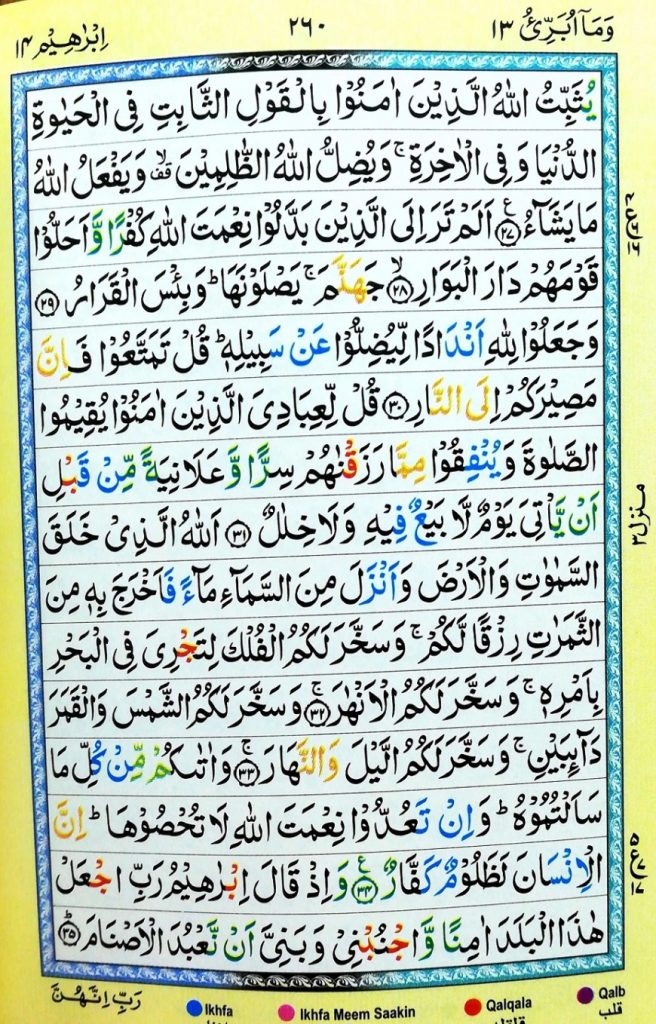 وَمَآ اُبَرِّئُ ١٣
٢٦٠
اِبْرٰهِيْم ١٤
يُثَبِّتُ اللّٰهُ الَّذِيْنَ اٰمَنُوْا بِالْقَوْلِ الثَّابِتِ فِى الْحَيٰوةِ
الدُّنْيَا وَفِى الْاٰخِرَةِ ۚ وَيُضِلُّ اللّٰهُ الظّٰلِمِيْنَ ۙ وَيَفْعَلُ اللّٰهُ
مَا يَشَآءُ ﴿٢٧﴾ اَلَمْ تَرَ اِلَى الَّذِيْنَ بَدَّلُوْا نِعْمَتَ اللّٰهِ كُفْرًا وَّ اَحَلُّوْا
قَوْمَهُمْ دَارَ الْبَوَارِ ﴿٢٨﴾ۙ جَهَنَّمَ ۚ يَصْلَوْنَهَا ؕ وَبِئْسَ الْقَرَارُ ﴿٢٩﴾
وَجَعَلُوْا لِلّٰهِ اَنْدَادًا لِّيُضِلُّوْا عَنْ سَبِيْلِهٖ ؕ قُلْ تَمَتَّعُوْا فَاِنَّ
مَصِيْرَكُمْ اِلَى النَّارِ ﴿٣٠﴾ قُلْ لِّعِبَادِىَ الَّذِيْنَ اٰمَنُوْا يُقِيْمُوا
الصَّلٰوةَ وَيُنْفِقُوْا مِمَّا رَزَقْنٰهُمْ سِرًّا وَّ عَلَانِيَةً مِّنْ قَبْلِ
اَنْ يَّاْتِىَ يَوْمٌ لَّا بَيْعٌ فِيْهِ وَلَا خِلٰلٌ ﴿٣١﴾ اَللّٰهُ الَّذِىْ خَلَقَ
السَّمٰوٰتِ وَالْاَرْضَ وَاَنْزَلَ مِنَ السَّمَآءِ مَآءً فَاَخْرَجَ بِهٖ مِنَ
الثَّمَرٰتِ رِزْقًا لَّكُمْ ۚ وَسَخَّرَ لَكُمُ الْفُلْكَ لِتَجْرِىَ فِى الْبَحْرِ
بِاَمْرِهٖ ۚ وَسَخَّرَ لَكُمُ الْاَنْهٰرَ ﴿٣٢﴾ۚ وَسَخَّرَ لَكُمُ الشَّمْسَ وَالْقَمَرَ
دَآئِبَيْنِ ۚ وَسَخَّرَ لَكُمُ الَّيْلَ وَالنَّهَارَ ﴿٣٣﴾ۚ وَاٰتٰىكُمْ مِّنْ كُلِّ مَا
سَاَلْتُمُوْهُ ؕ وَاِنْ تَعُدُّوْا نِعْمَتَ اللّٰهِ لَا تُحْصُوْهَا ؕ اِنَّ
الْاِنْسَانَ لَظَلُوْمٌ كَفَّارٌ ﴿٣٤﴾ وَاِذْ قَالَ اِبْرٰهِيْمُ رَبِّ اجْعَلْ
هٰذَا الْبَلَدَ اٰمِنًا وَّاجْنُبْنِىْ وَبَنِىَّ اَنْ نَّعْبُدَ الْاَصْنَامَ ﴿٣٥﴾ؕ
منزل ٣
رَبِّ اِنَّهُنَّ
Ikhfa
Ikhfa Meem Saakin
Qalqala
Qalb
قلب